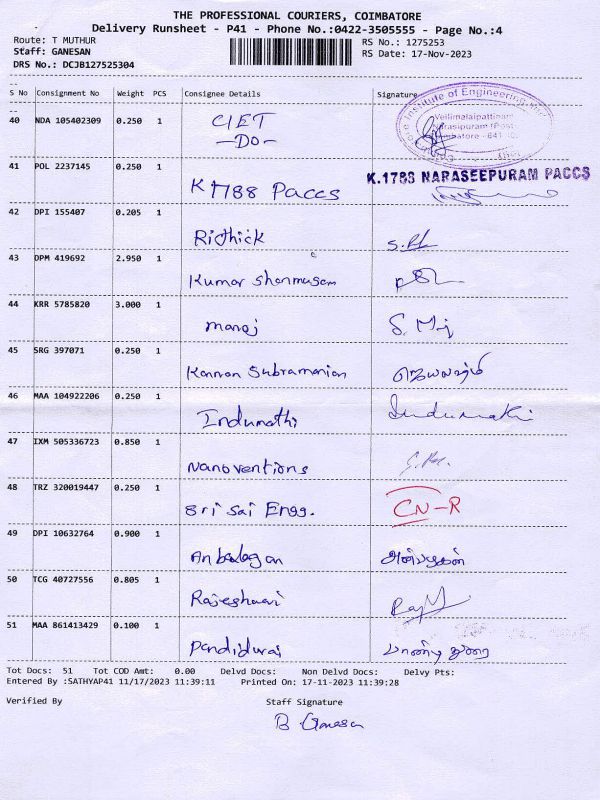 THE PROFESSIONAL COURIERS, COIMBATORE
Delivery Runsheet - P41 - Phone No.:0422-3505555 - Page No.:4
Route: T MUTHUR
Staff: GANESAN
DRS No.: DCJB127525304
RS No.: 1275253
RS Date: 17-Nov-2023
S No Consignment No Weight PCS Consignee Details Signature
40 NDA 105402309 0.250 1 CIET
-DO-
Institute of Engineering
Vellimalaipattinam
Narasipuram (Post)
Coimbatore - 641
41 POL 2237145 0.250 1 K1788 Paccs K.1788 NARASEEPURAM PACCS
42 DPI 155407 0.205 1 Rithick
43 DPM 419692 2.950 1 Kumar Shanmugam
44 KRR 5785820 3.000 1 Manoj S. Mj
45 SRG 397071 0.250 1 Kannan Subramanian ஜெயலட்சுமி
46 MAA 104922206 0.250 1 Indumathi Indumathi
47 IXM 505336723 0.850 1 Nanoventions
48 TRZ 320019447 0.250 1 Sri Sai Engg. CN-R
49 DPI 10632764 0.900 1 Anbalagan அன்பழகன்
50 TCG 40727556 0.805 1 Rajeshwari
51 MAA 861413429 0.100 1 Pandidurai பாண்டி துரை
Tot Docs: 51 Tot COD Amt: 0.00 Delvd Docs: Non Delvd Docs: Delvy Pts:
Entered By :SATHYAP41 11/17/2023 11:39:11 Printed On: 17-11-2023 11:39:28
Verified By Staff Signature
B Ganesan